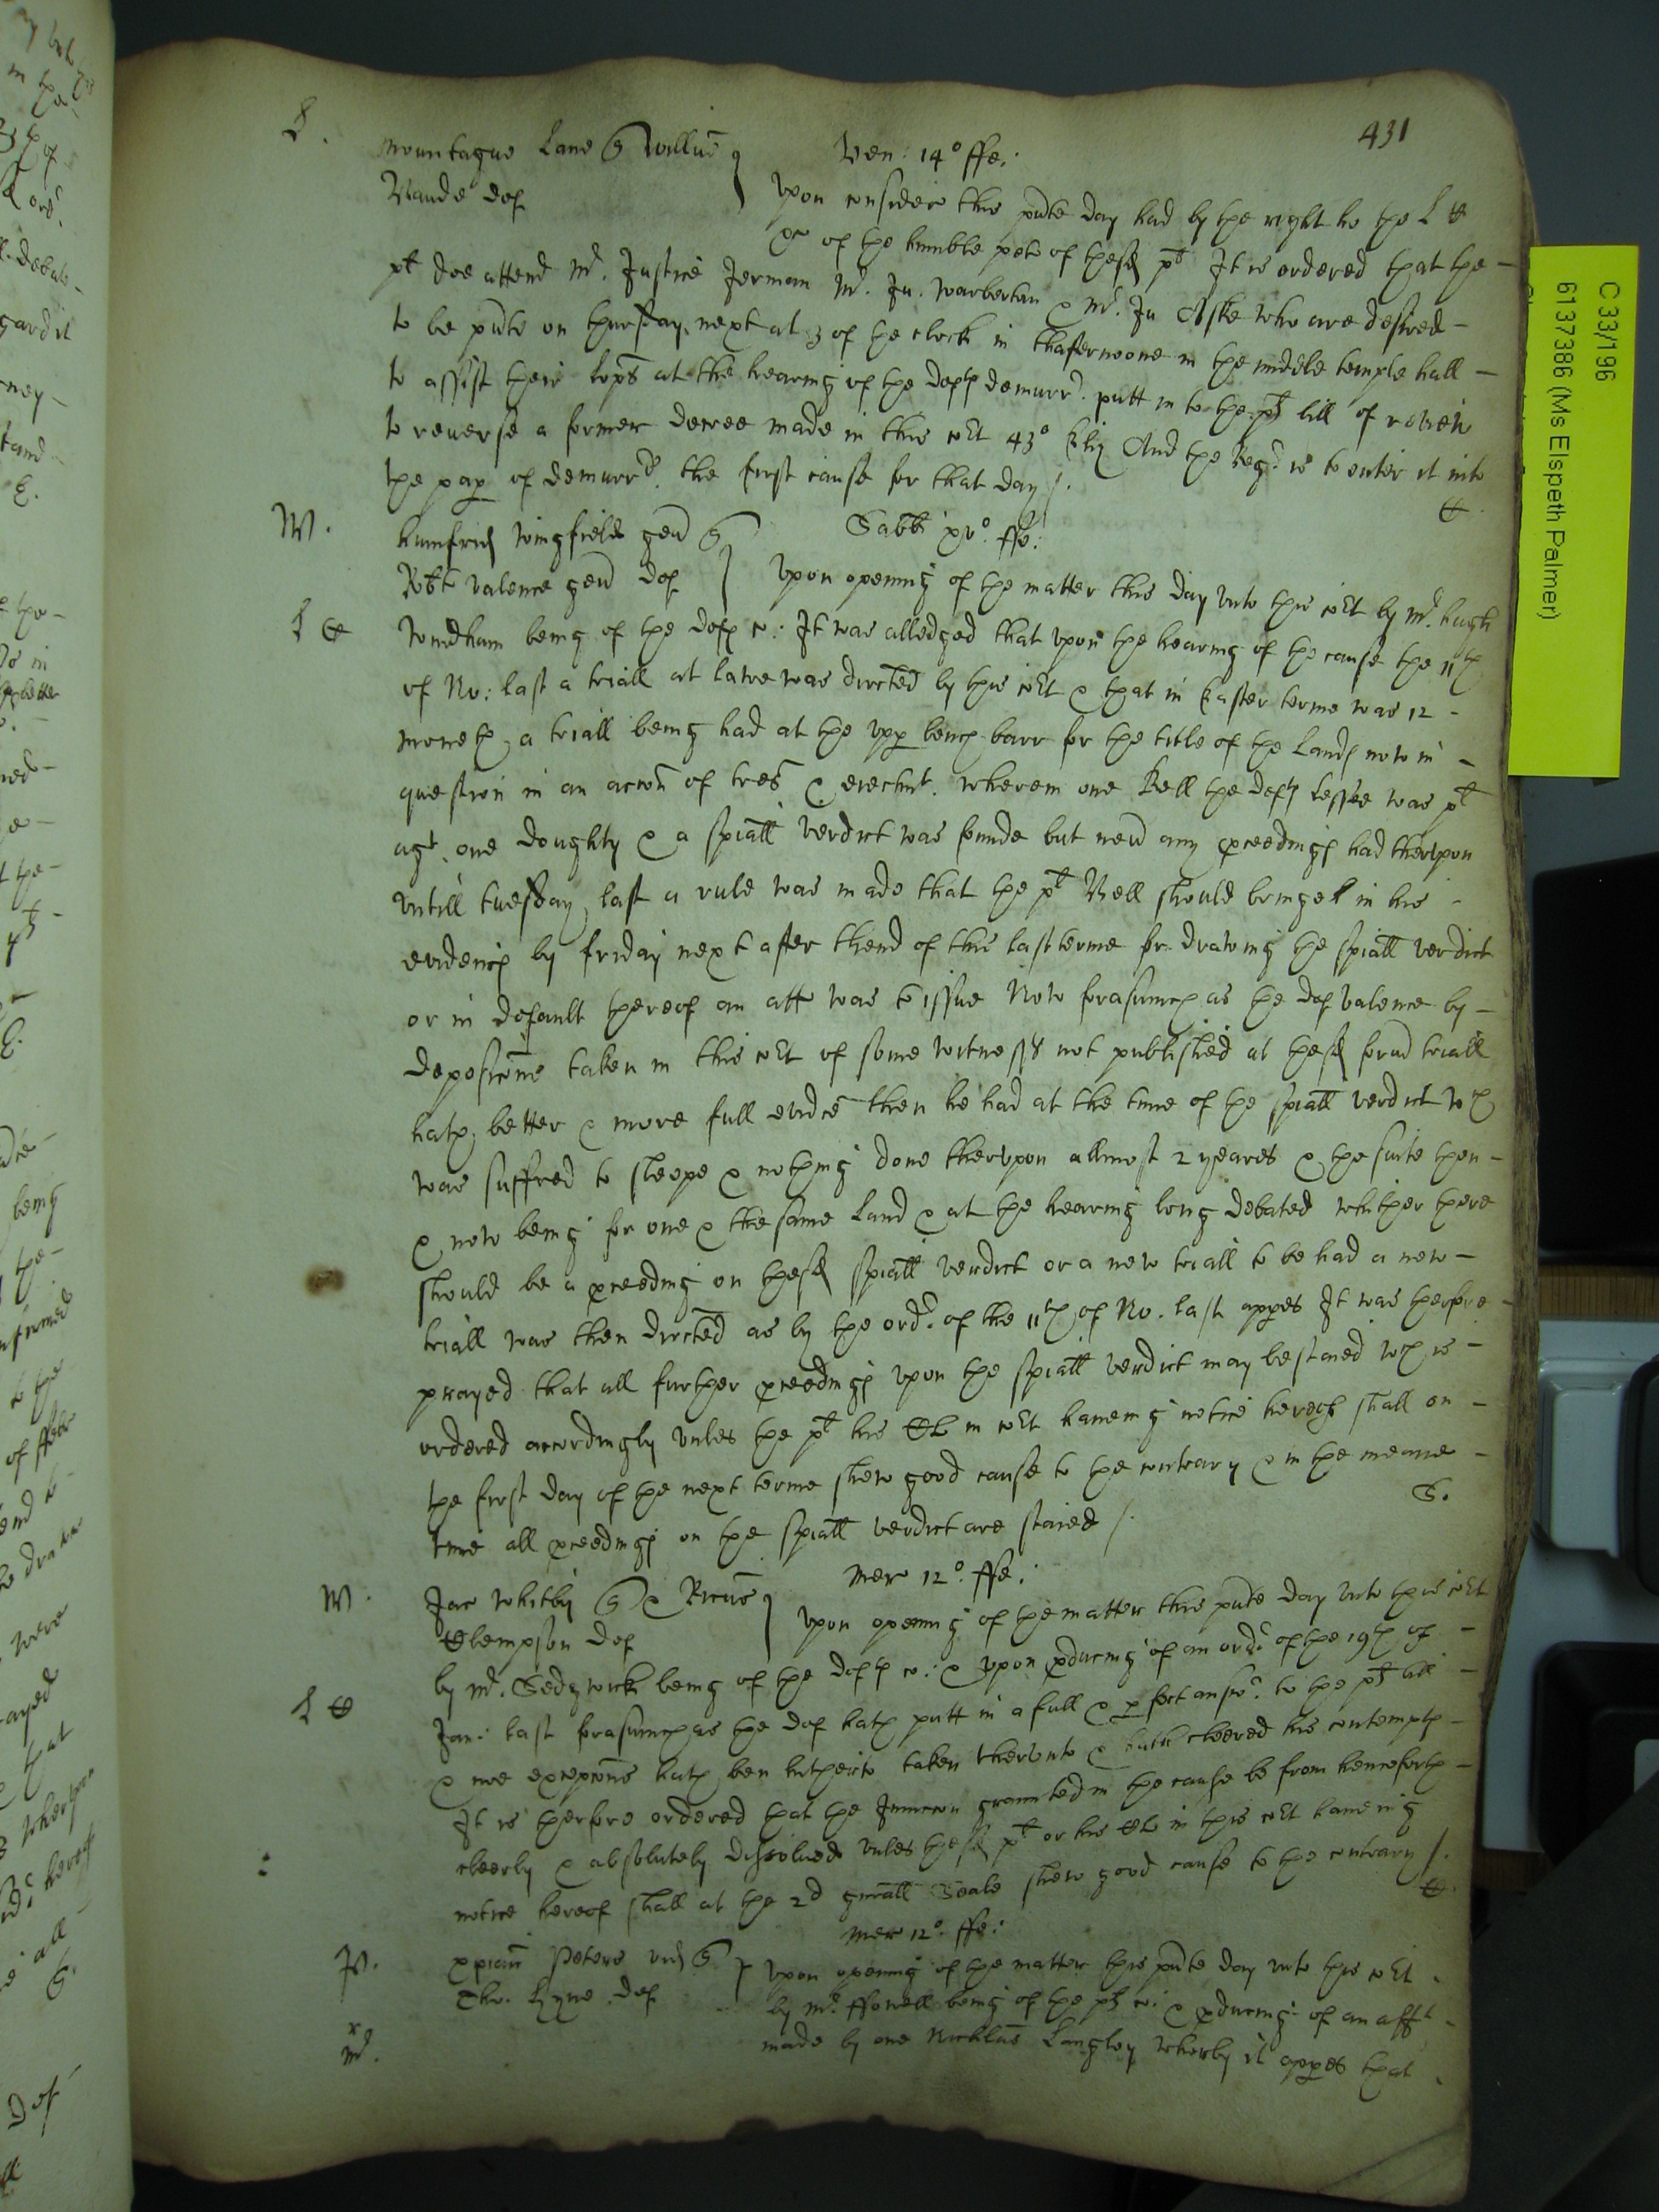 431
L.
Mountague Lane q Willus } Ven: 14° ffe:
Maude def } Upon consider this pnte day had by the right ho the L C
of the humble peto of thesd plt It is ordered that the
plt doe attend Mr. Justice Jerman Mr. Ju. Warberton & Mr. Ju Aske who are desired
to be pnte on thursday next at 3 of the clock in thafternoone in the middle temple hall
to assist their lopps at the hearing of the defts demurr. putt in to the plts bill of review
to reverse a former decree made in this cort 43° Eliz And the Regr is to enter it into
the pap of demurrs. the first cause for that day /.
W.
humfrid Wingfield gen q Sabti xv° ffe:
Robt Valence gen def } Upon opening of the matter this day unto this cort by Mr. hugh
L C
Windham being of the defts co: It was alledged that upon the hearing of the cause the 11th
of No: last a triall at lawe was directed by this cort & that in Easter terme was 12
moneth a triall being had at the upp bench barr for the title of the lands now in
question in an accon of tres & eiectmt. wherein one Bell the defts lessee was plt
agt. one Doughty & a spiall verdict was founde but nev any pceedings had therupon
untill tuesday last a rule was made that the plt Bell should bringe in his
evidence by friday next after thend of this last terme for drawing the spiall verdict
or in default thereof an att was to issue Now forasmuch as the def Valence by
deposicons taken in this cort of some witnesses not published at thesd formd triall
hath better & more full evidce then he had at the time of the spiall verdict wch
was suffred to sleepe & nothing done therupon allmost 2 yeares & the suite then
& now being for one & the same land & at the hearing long debated whither there
should be a pceeding on thesd spiall verdict or a new triall to be had a new
triall was then directed as by the ordr. of the 11th of No. last appes It was therfore
prayed that all further pceedings upon the spiall verdict may be staied wch is
ordered accordingly unles the plt his Cl in cort haveing notice hereof shall on
the first day of the next terme shew good cause to the contrary & in the meane
time all pceedings on the spiall verdict are staied /.
S.
W.
Jac Whitby q & Ricus } Mer 12°. ffe:
Clempson def } Upon opening of the matter this pnte day unto this cort
by Mr. Sedgwick being of the defts co: & upon pducing of an ordr of the 19th of
L C
Jan: last forasmuch as the def hath putt in a full & pfect answr. to the plts bill
& noe excepcons hath ben hitherto taken therunto & hath cleered his contempts
It is therfore ordered that the Iniuccon graunted in the cause be from henceforth
cleerly & absolutely dissolued unles thesd plt or his Cl in this cort haveing
notice hereof shall at the 2d gnrall Seale shew good cause to the contrary /.
C.
Mer 12°. ffe:
P.
xpian Peters vid q } Upon opening of the matter this pnte day unto this cort
Tho. Lyne def by Mr. ffowell being of the plts co: & pducing of an afft
made by one Nicklus Langley wherby it appes that
C 33/196
6137386 (Ms Elspeth Palmer)